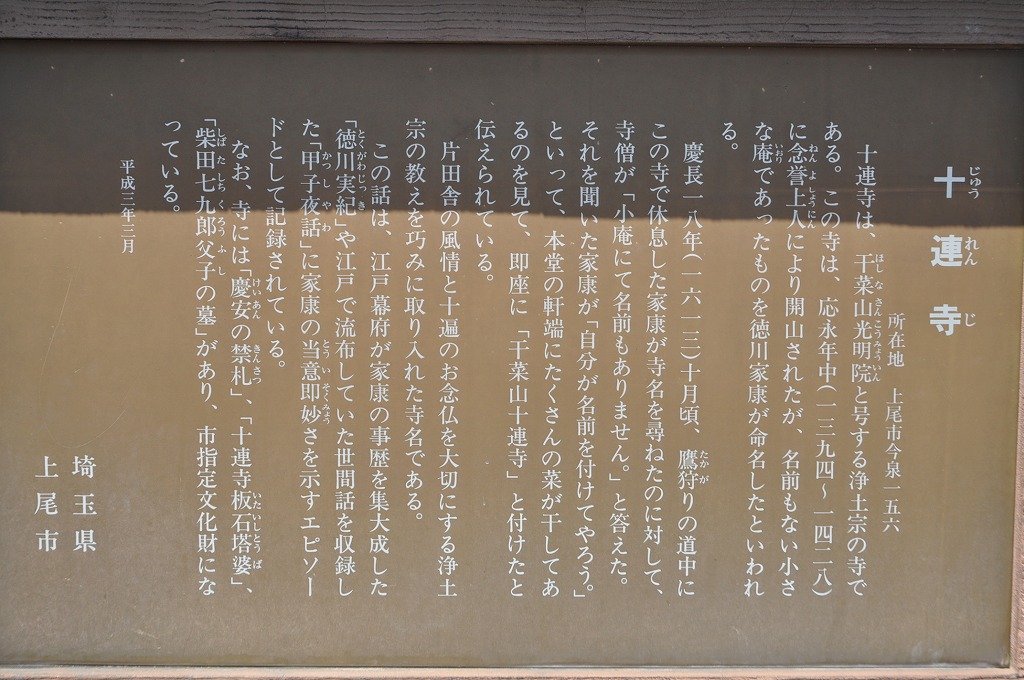 十連寺
所在地　上尾市今泉一五六
十連寺は、干菜山光明院と号する浄土宗の寺で
ある。この寺は、応永年中（一三九四～一四二八）
に念誉上人により開山されたが、名前もない小さ
な庵であったものを徳川家康が命名したといわれ
る。
慶長一八年（一六一三）十月頃、鷹狩りの道中に
この寺で休息した家康が寺名を尋ねたのに対して、
寺僧が「小庵にて名前もありません。」と答えた。
それを聞いた家康が「自分が名前を付けてやろう。」
といって、本堂の軒端にたくさんの菜が干してあ
るのを見て、即座に「干菜山十連寺」と付けたと
伝えられている。
片田舎の風情と十遍のお念仏を大切にする浄土
宗の教えを巧みに取り入れた寺名である。
この話は、江戸幕府が家康の事歴を集大成した
「徳川実紀」や江戸で流布していた世間話を収録し
た「甲子夜話」に家康の当意即妙さを示すエピソー
ドとして記録されている。
なお、寺には「慶安の禁札」、「十連寺板石塔婆」、
「柴田七九郎父子の墓」があり、市指定文化財にな
っている。
平成三年三月
埼玉県
上尾市